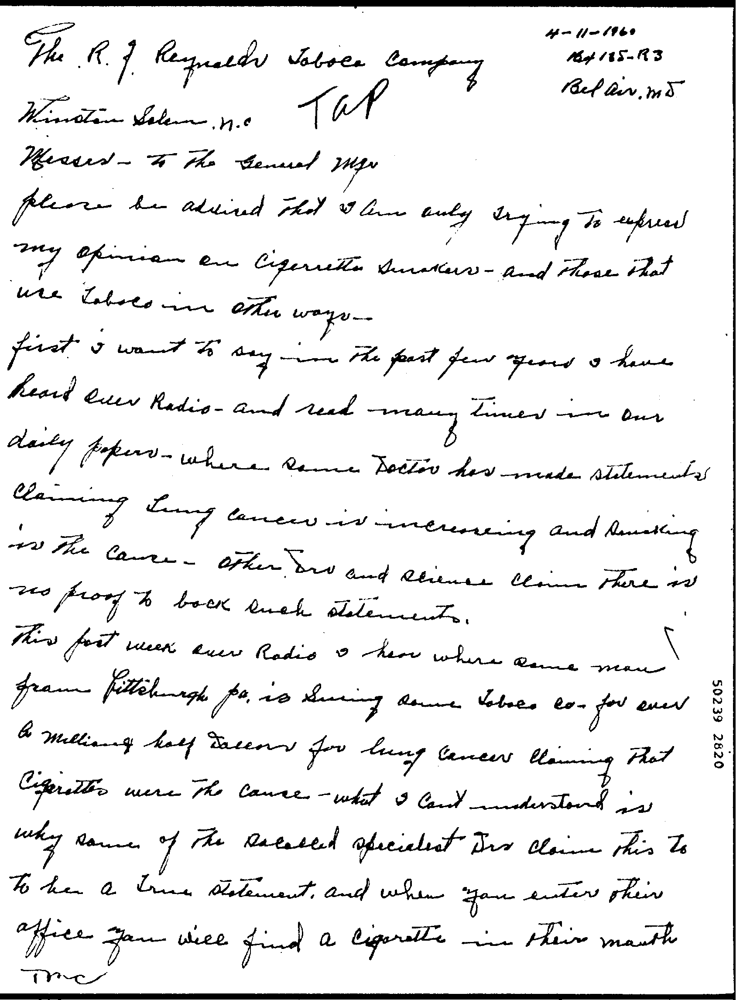 4-11-1960
Bx 185-R3
Bel Air, Md
The R. J Reynolds Tobaco Company
Winston Salem, n.c
TaP
Messers - to the General Mgr
please be advised that I am only trying to express
my opinion on Cigerretts Smokers - and those that
use Tobaco in other ways -
first I want to say - in the past few years I have
heard over Radio - and read many times in our
daily papers - where some Doctor has made statements
Claiming Lung Cancer is increaseing and Smoking
is the Cause - other Drs and science Claim there is
no proof to back such statements.
This past week over Radio I hear where some man
from Pittsburgh pa. is Sueing some Tobaco co - for over
a million & half Dollars for lung Cancer Claiming that
Cigarettes were the cause - what I Can't understand is
why some of the socalled specialest Drs claim this to
to be a True statement. and when you enter their
office you will find a Cigarette in their mouth
50239 2820